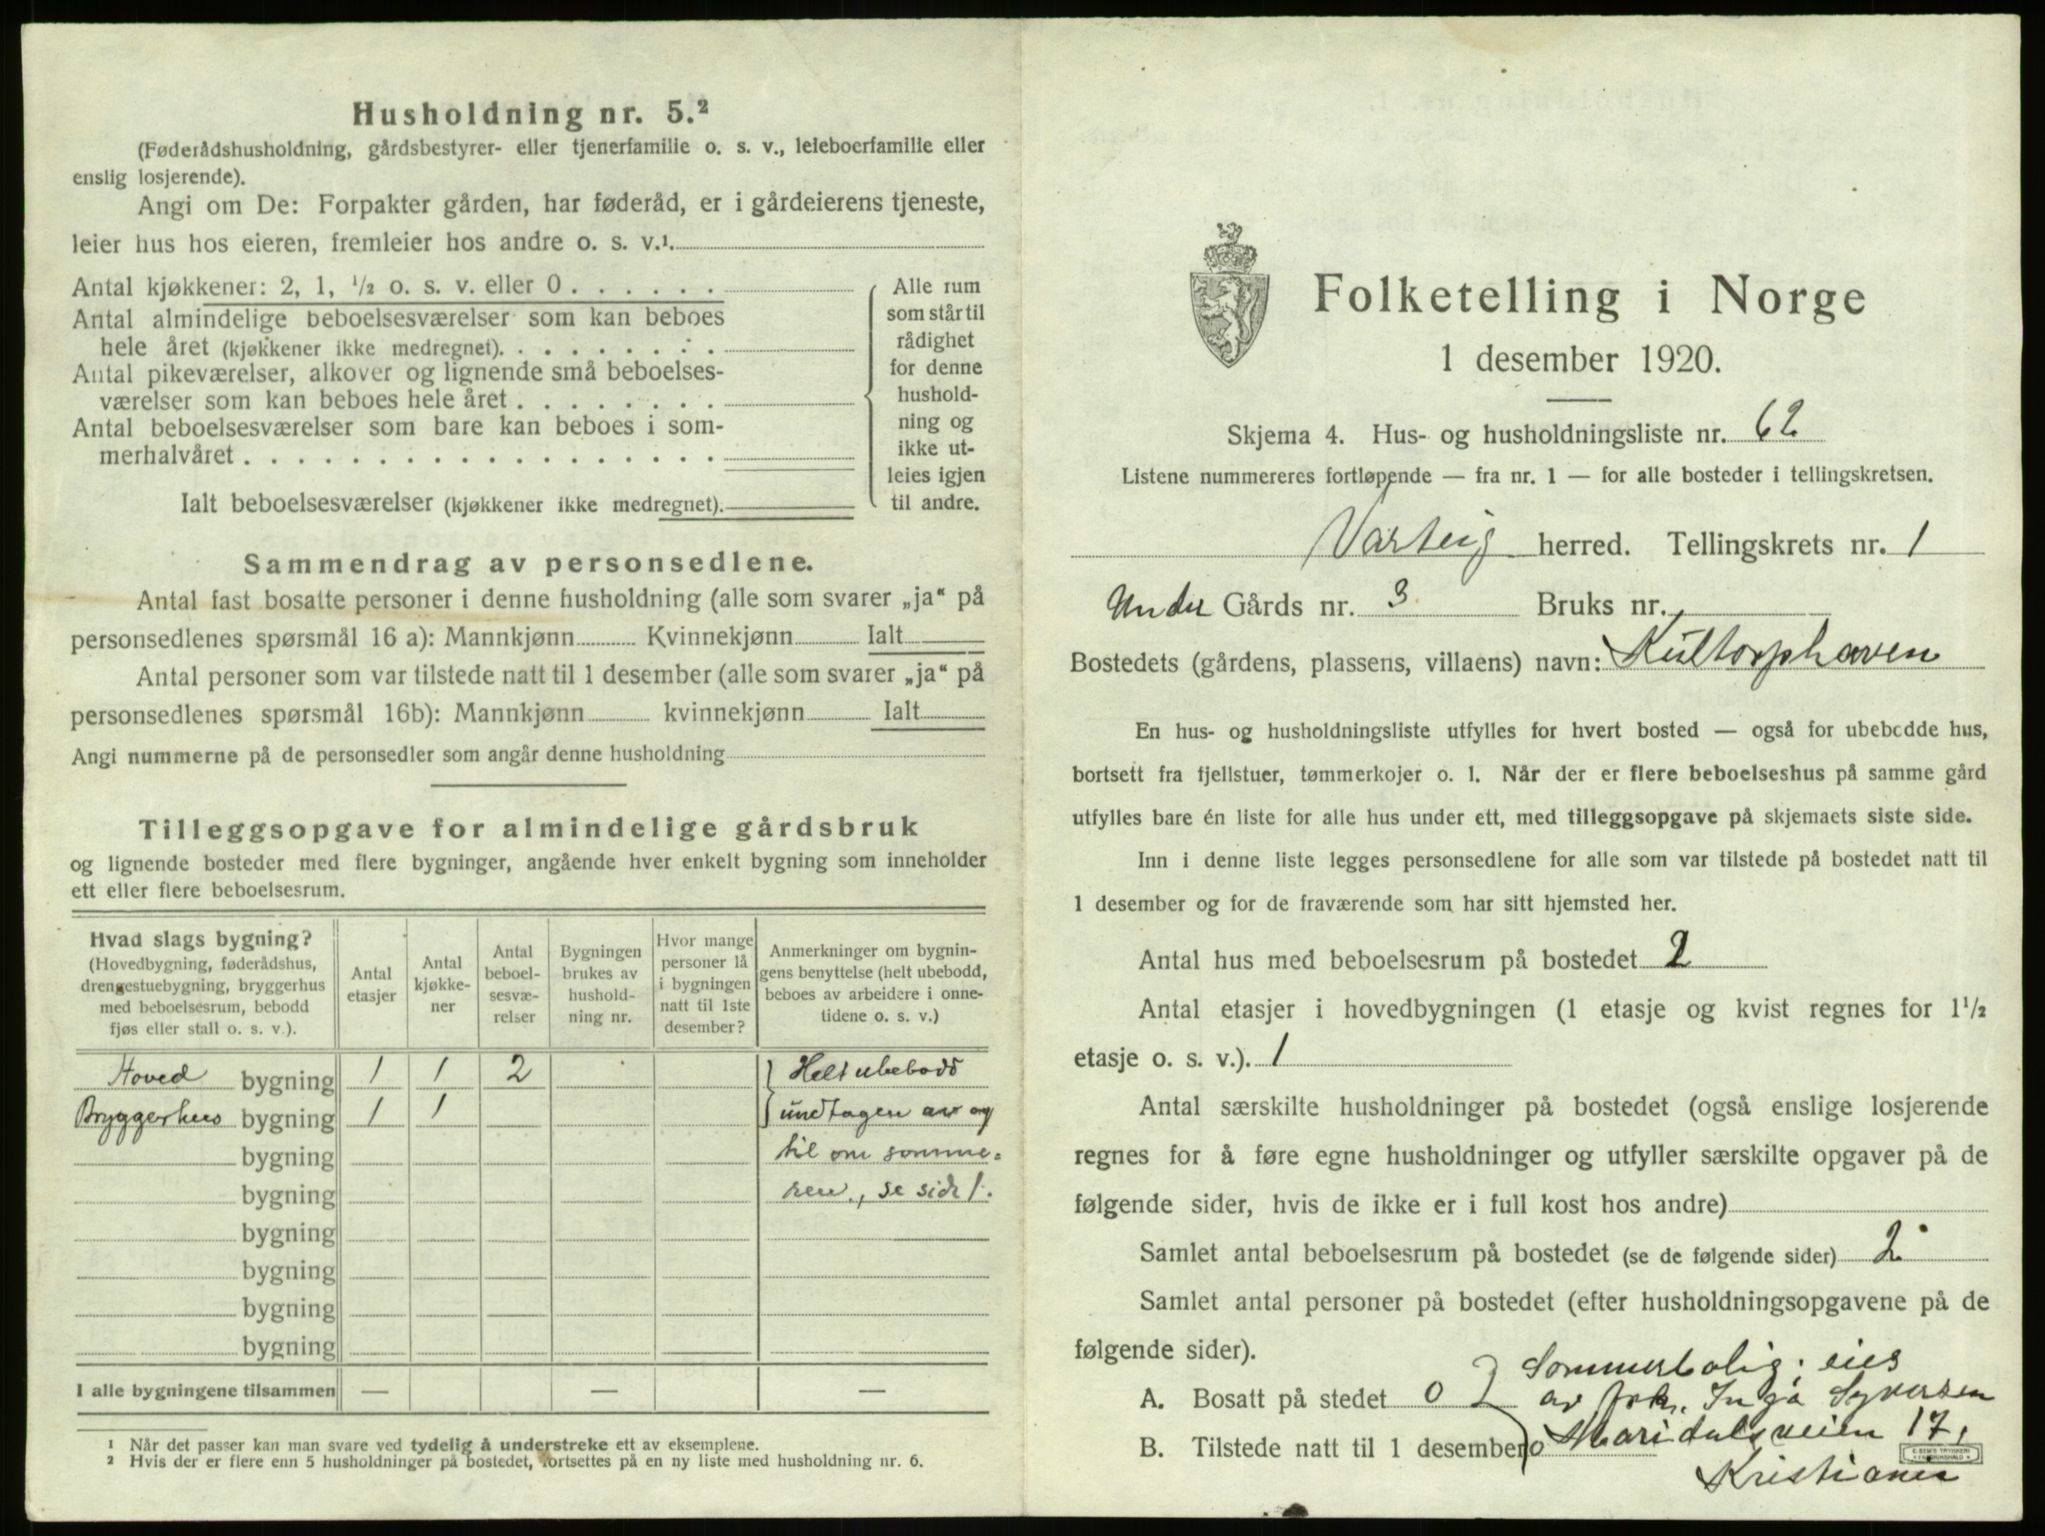 Husholdning nr. 5.²
(Føderådshusholdning, gårdsbestyrer- eller tjenerfamilie o. s. v., leieboerfamilie eller
enslig losjerende).
Angi om De: Forpakter gården, har føderåd, er i gårdeierens tjeneste,
leier hus hos eieren, fremleier hos andre o. s. v.¹
Antal kjøkkener: 2, 1, ½ o. s. v. eller 0
Antal almindelige beboelsesværelser som kan beboes
hele året (kjøkkener ikke medregnet)
Antal pikeværelser, alkover og lignende små beboelses-
værelser som kan beboes hele året
Antal beboelsesværelser som bare kan beboes i som-
merhalvåret
Ialt beboelsesværelser (kjøkkener ikke medregnet)
Alle rum
som står til
rådighet
for denne
hushold-
ning og
ikke ut-
leies igjen
til andre.
Sammendrag av personsedlene.
Antal fast bosatte personer i denne husholdning (alle som svarer „ja“ på
personsedlenes spørsmål 16 a): Mannkjønn Kvinnekjønn Ialt
Antal personer som var tilstede natt til 1 desember (alle som svarer „ja“ på
personsedlenes spørsmål 16b): Mannkjønn kvinnekjønn Ialt
Angi nummerne på de personsedler som angår denne husholdning
Tilleggsopgave for almindelige gårdsbruk
og lignende bosteder med flere bygninger, angående hver enkelt bygning som inneholder
ett eller flere beboelsesrum.
Hvad slags bygning?
(Hovedbygning, føderådshus,
drengestuebygning, bryggerhus
med beboelsesrum, bebodd
fjøs eller stall o. s. v.).
Antal
etasjer
Antal
kjøkke-
ner
Antal
beboel-
sesvæ-
relser
Bygningen
brukes av
hushold-
ning nr.
Hvor mange
personer lå
i bygningen
natt til 1ste
desember?
Anmerkninger om bygnin-
gens benyttelse (helt ubebodd,
beboes av arbeidere i onne-
tidene o. s. v.)
Hoved bygning 1 1 2 Helt ubebodd
Bryggerhus bygning 1 1 undtagen av og
bygning til om somme=
bygning ren, se side 1.
bygning
bygning
bygning
bygning
I alle bygningene tilsammen — — —
¹ Når det passer kan man svare ved tydelig å understreke ett av eksemplene.
² Hvis der er flere enn 5 husholdninger på bostedet, fortsettes på en ny liste med husholdning nr. 6.
Folketelling i Norge
1 desember 1920.
Skjema 4. Hus- og husholdningsliste nr. 62
Listene nummereres fortløpende — fra nr. 1 — for alle bosteder i tellingskretsen.
Varteig herred. Tellingskrets nr. 1
Under Gårds nr. 3 Bruks nr.
Bostedets (gårdens, plassens, villaens) navn: Kultorphaven
En hus- og husholdningsliste utfylles for hvert bosted — også for ubebodde hus,
bortsett fra fjellstuer, tømmerkojer o. l. Når der er flere beboelseshus på samme gård
utfylles bare én liste for alle hus under ett, med tilleggsopgave på skjemaets siste side.
Inn i denne liste legges personsedlene for alle som var tilstede på bostedet natt til
1 desember og for de fraværende som har sitt hjemsted her.
Antal hus med beboelsesrum på bostedet 2
Antal etasjer i hovedbygningen (1 etasje og kvist regnes for 1½
etasje o. s. v.). 1
Antal særskilte husholdninger på bostedet (også enslige losjerende
regnes for å føre egne husholdninger og utfyller særskilte opgaver på de
følgende sider, hvis de ikke er i full kost hos andre)
Samlet antal beboelsesrum på bostedet (se de følgende sider) 2
Samlet antal personer på bostedet (efter husholdningsopgavene på de
følgende sider). Sommerbolig; eies
A. Bosatt på stedet 0 av frk. Inga Syversen
B. Tilstede natt til 1 desember 0 Maridalsveien 17,
Kristiania